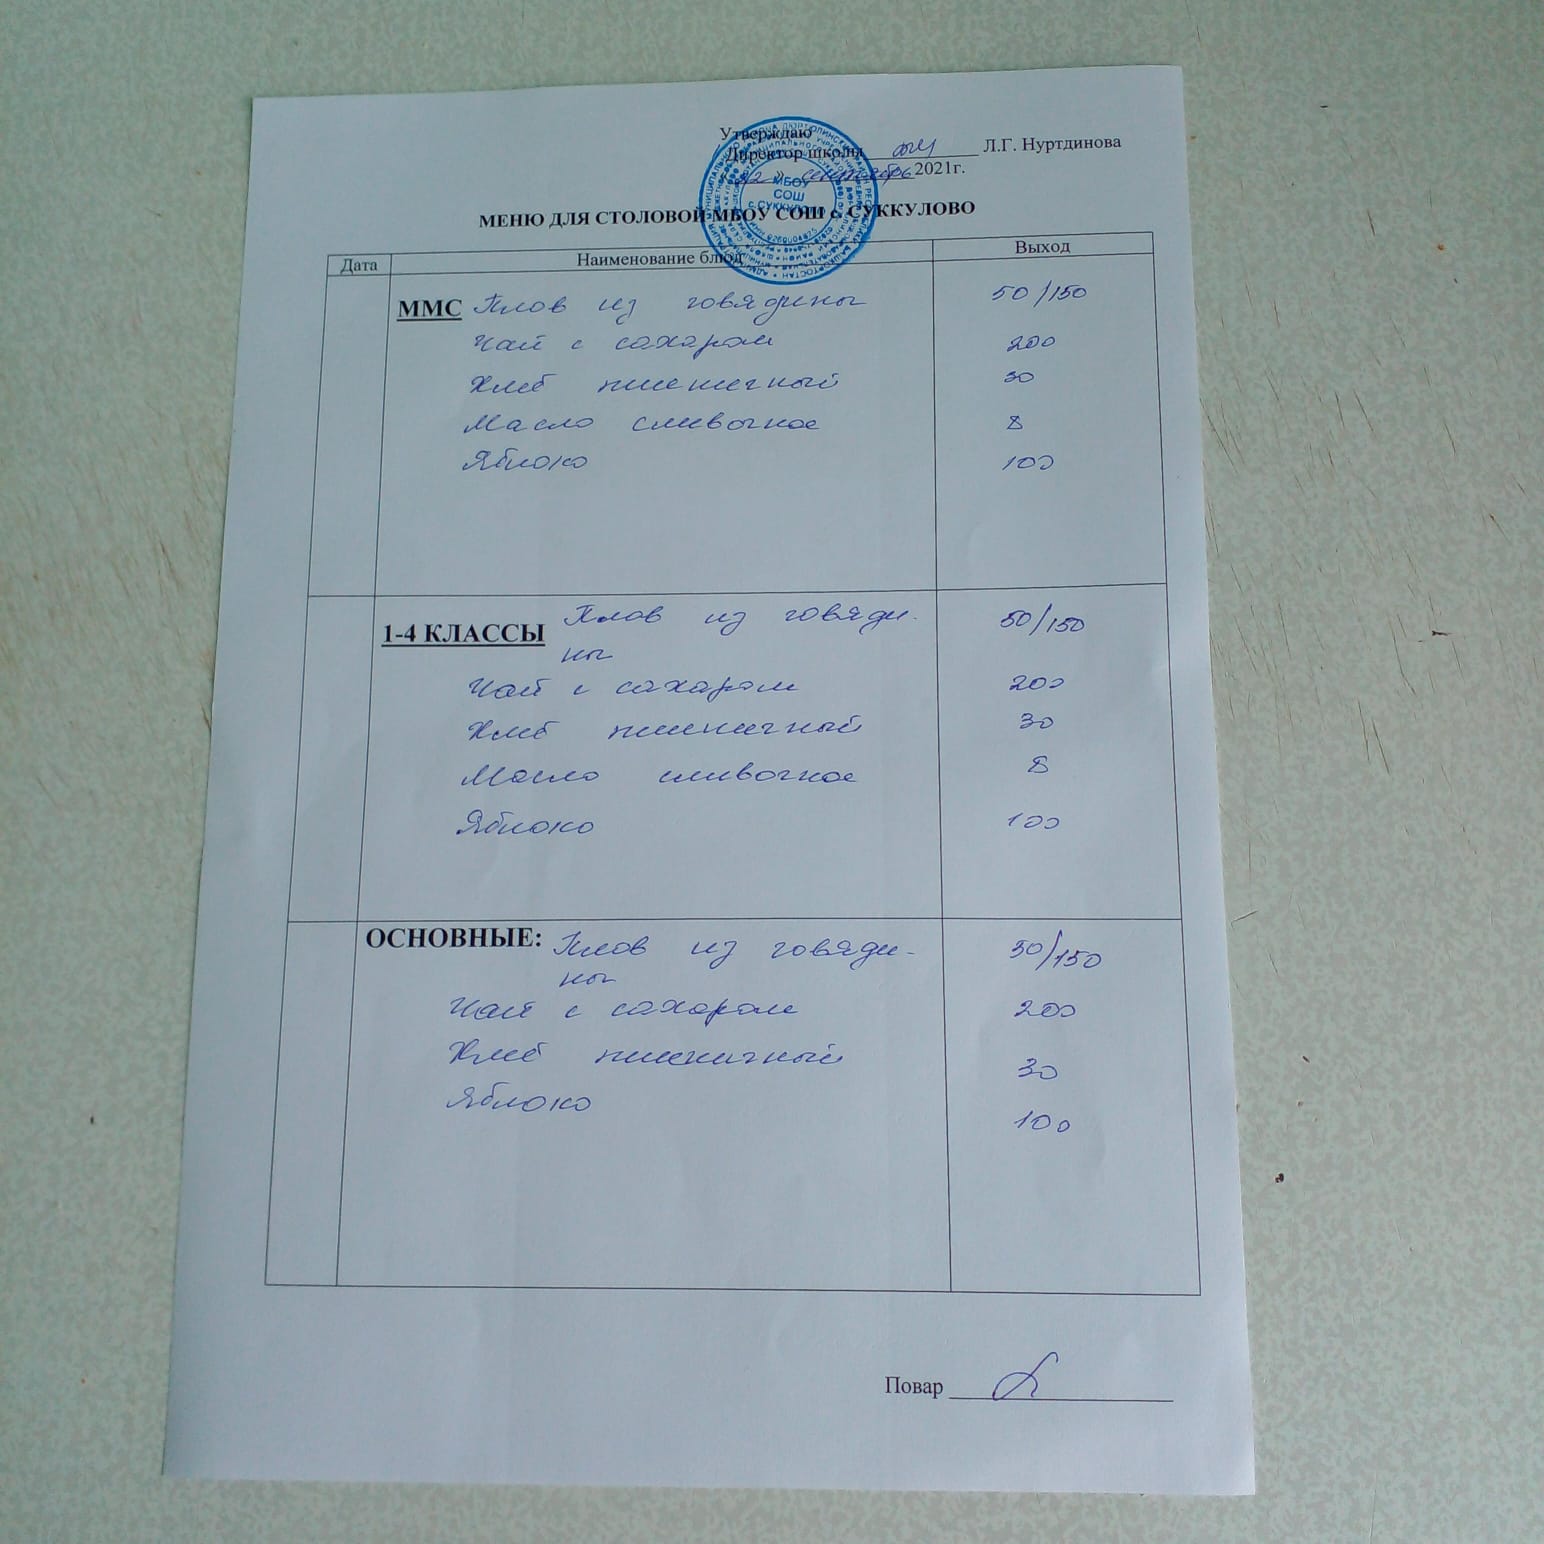 Утверждаю
Директор школы Л.Г. Нуртдинова
сентябрь 2021г.
МБОУ
СОШ
с.СУККУЛОВО
МЕНЮ ДЛЯ СТОЛОВОЙ МБОУ СОШ с. СУККУЛОВО
Дата Наименование блюд Выход
ММС Плов из говядины 50/150
Чай с сахаром 200
Хлеб пшеничный 30
Масло сливочное 8
Яблоко 100
1-4 КЛАССЫ Плов из говяди- 50/150
ны
Чай с сахаром 200
Хлеб пшеничный 30
Масло сливочное 8
Яблоко 100
ОСНОВНЫЕ: Плов из говяди- 50/150
ны
Чай с сахаром 200
Хлеб пшеничный 30
Яблоко 100
Повар